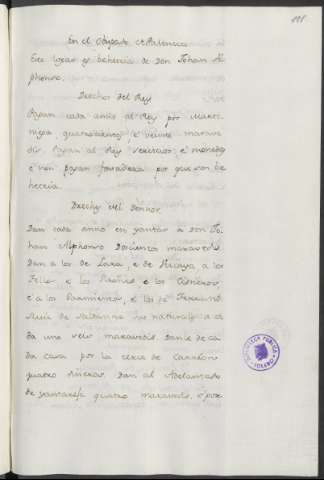 191
En el Obispado de Palencia
Este logar es behetria de Don Johan Al
phonso.
Derechos del Rey
Pagan cada anno al Rey por Marti
niega quatrocientos e veinte marave
dis. Pagan al Rey servicios, e moneda
e non pagan fonsadera por que son be
hetria.
Derechos del Sennor
Dan cada anno en yantar a Don Jo
han Alphonso docientos maravedis.
Dan a los de Lara, e de Vizcaya, a los
Tellos e los e los Cisneros,
e a los Sarmientos, e los de Ferrand
Ruiz de Saldanna los naturales a ca
da uno seis maravedis. Danle de ca
da casa por la cerca de Carrión
quatro dineros. Dan al Adelantado
de yantareja quatro maravedis, o por
BIBLIOTECA PUBLICA
TOLEDO